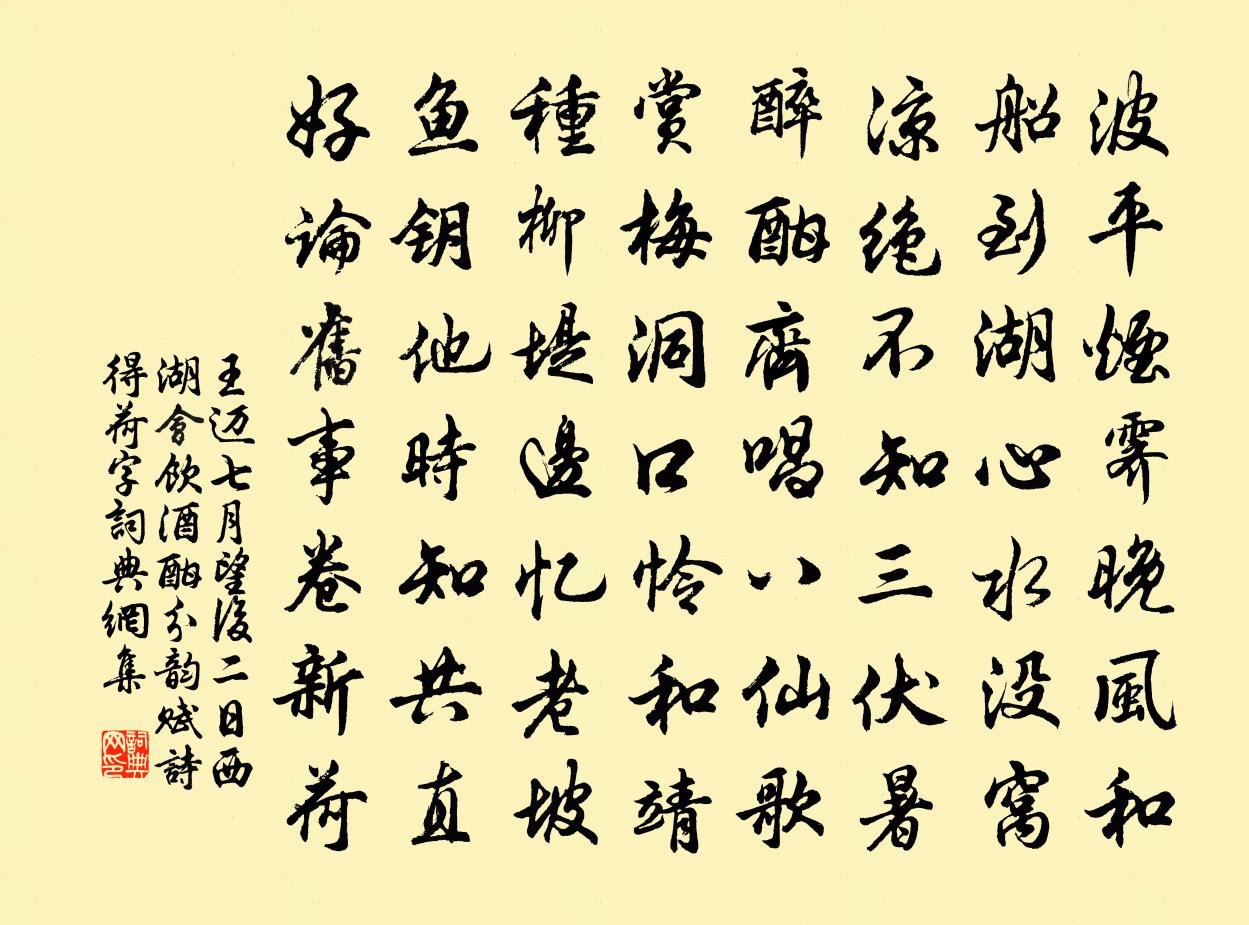 波平煙霽晚風和
船到湖心水没窩
涼绝不知三伏暑
醉酣齊唱八仙歌
赏梅洞口怜和靖
種柳堤邊忆老坡
鱼钥他時知共直
好論舊事卷新荷
王迈七月望後二日西
湖會飲酒酣分韵赋詩
得荷字詞典網集
詞典网印